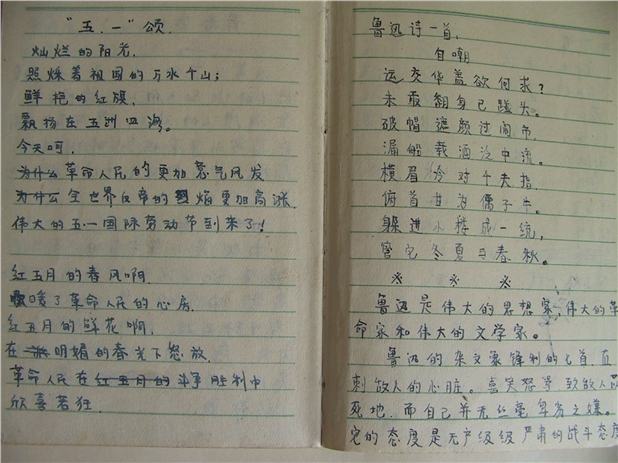 "五.一"颂.
灿烂的阳光.
照烁着祖国的万水千山;
鲜艳的红旗.
飘扬在五洲四海。
今天呵.
为什么革命人民的更加意气风发
为什么全世界反帝的焰更加高涨.
伟大的五.一国际劳动节到来了!
红五月的春风啊.
暖了革命人民的心房.
红五月的鲜花啊,
在明媚的春光下怒放.
革命人民在红五月的斗争胜利中
欣喜若狂.
鲁迅诗一首,
自嘲
运交华盖欲何求?
未敢翻身已碰头。
破帽遮颜过闹市,
漏船载酒泛中流。
横眉冷对千夫指.
俯首甘为孺子牛。
躲进小楼成一统,
管它冬夏与春秋。
※ ※ ※
鲁迅是伟大的思想家,伟大的革
命家和伟大的文学家。
鲁迅的杂文象锋利的匕首,直
刺敌人的心脏。喜笑怒骂致敌人
死地.而自己并无丝毫卑劣之嫌。
它的态度是无产级级严肃的战斗态度